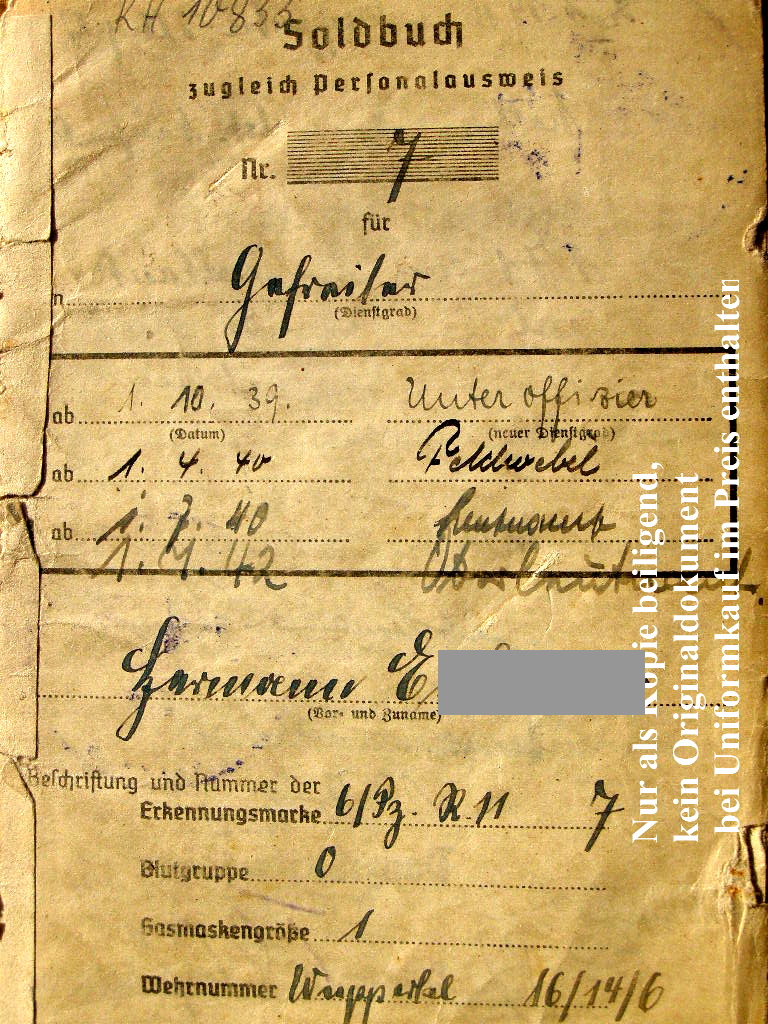 RH 10833
Soldbuch
zugleich Personalausweis
Nr. 7
für
n Gefreiter
(Dienstgrad)
ab 1. 10. 39. Unteroffizier
(Datum) (neuer Dienstgrad)
ab 1. 4. 40 Feldwebel
ab 1. 7. 40 Leutnant
1. 4. 42 Oberleutnant.
Hermann E
(Vor- und Zuname)
Beschriftung und Nummer der
Erkennungsmarke 6/Pz. R. 11 7
Blutgruppe 0
Gasmaskengröße 1
Wehrnummer Wuppertal 16/14/6
Nur als Kopie beiligend,
kein Originaldokument
bei Uniformkauf im Preis enthalten